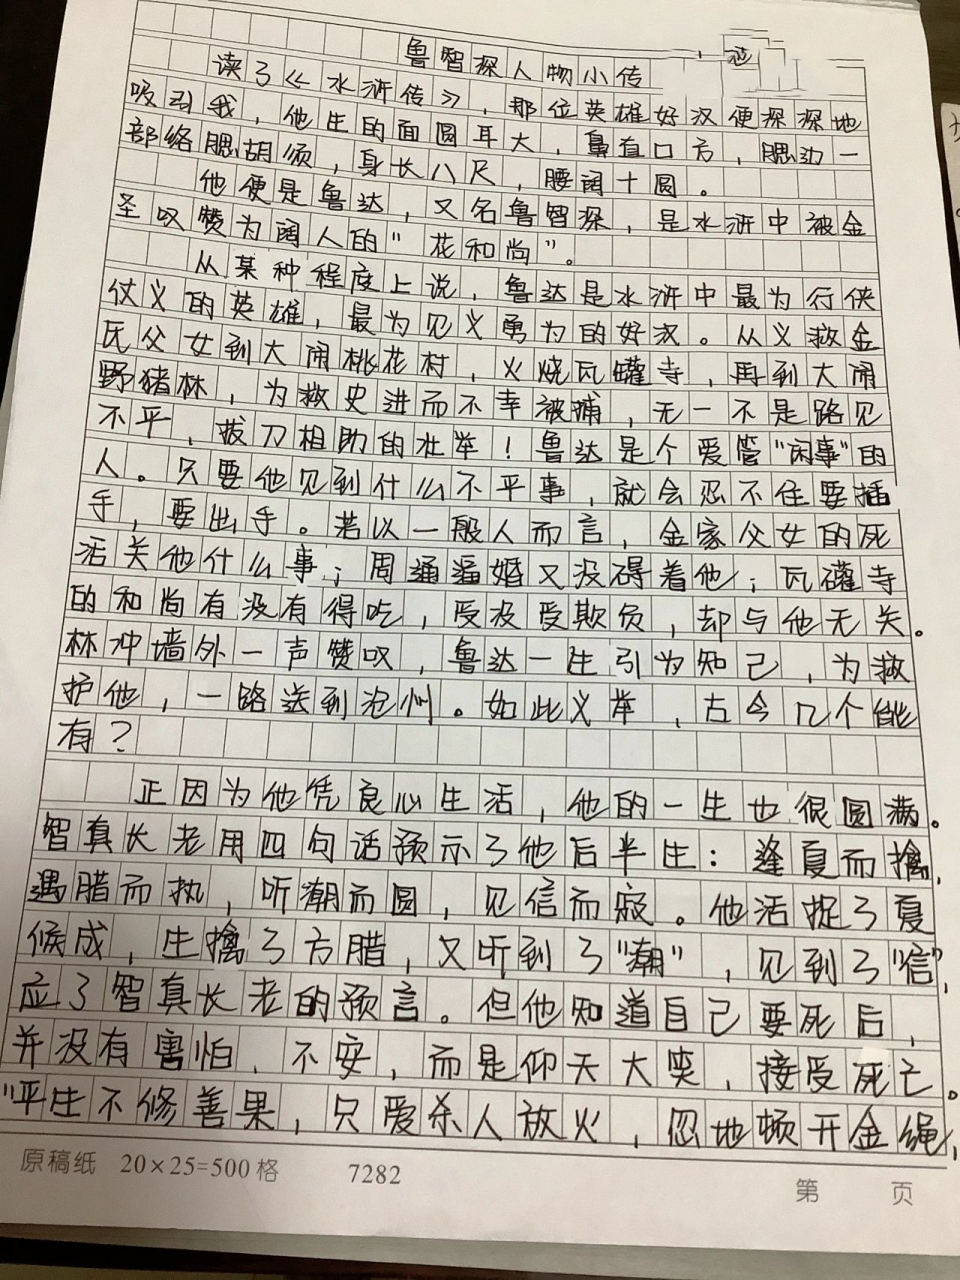 鲁智深人物小传
读了《水浒传》，那位英雄好汉便深深地
吸引我，他生的面圆耳大，鼻直口方，腮边一
部络腮胡须，身长八尺，腰阔十圆。
他便是鲁达，又名鲁智深，是水浒中被金
圣叹赞为阔人的“花和尚”。
从某种程度上说，鲁达是水浒中最为行侠
仗义的英雄，最为见义勇为的好汉。从义救金
氏父女到大闹桃花村，火烧瓦罐寺，再到大闹
野猪林，为救史进而不幸被捕，无一不是路见
不平，拔刀相助的壮举！鲁达是个爱管“闲事”的
人。只要他见到什么不平事，就会忍不住要插
手，要出手。若以一般人而言，金家父女的死
活关他什么事；周通逼婚又没碍着他；瓦罐寺
的和尚有没有得吃，受没受欺负，却与他无关。
林冲墙外一声赞叹，鲁达一生引为知己，为救
护他，一路送到沧州。如此义举，古今几个能
有？
正因为他凭良心生活，他的一生也很圆满。
智真长老用四句话预示了他后半生：逢夏而擒，
遇腊而执，听潮而圆，见信而寂。他活捉了夏
候成，生擒了方腊，又听到了“潮”，见到了“信”，
应了智真长老的预言。但他知道自己要死后，
并没有害怕、不安，而是仰天大笑，接受死亡。
“平生不修善果，只爱杀人放火，忽地顿开金绳，
原稿纸 20×25=500格 7282
第 页